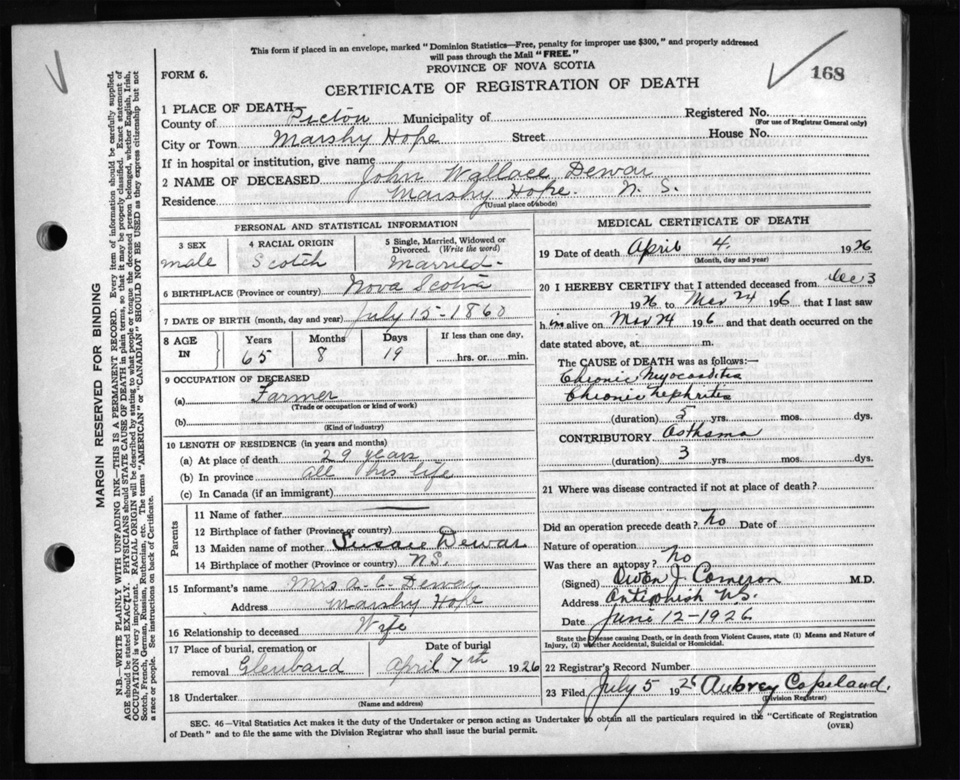 This form if placed in an envelope, marked "Dominion Statistics—Free, penalty for improper use $300," and properly addressed
will pass through the Mail "FREE."
PROVINCE OF NOVA SCOTIA
FORM 6.
CERTIFICATE OF REGISTRATION OF DEATH
168
1 PLACE OF DEATH—
County of Pictou Municipality of Registered No.
(For use of Registrar General only)
City or Town Marshy Hope Street House No.
If in hospital or institution, give name
2 NAME OF DECEASED John Wallace Dewar
Residence Marshy Hope. N. S.
(Usual place of abode)
PERSONAL AND STATISTICAL INFORMATION
3 SEX male
4 RACIAL ORIGIN Scotch
5 Single, Married, Widowed or Divorced. (Write the word)
Married
6 BIRTHPLACE (Province or country) Nova Scotia
7 DATE OF BIRTH (month, day and year) July 15-1860
8 AGE IN
Years Months Days If less than one day,
65 8 19 hrs. or min.
9 OCCUPATION OF DECEASED
(a) Farmer
(Trade or occupation or kind of work)
(b)
(Kind of industry)
10 LENGTH OF RESIDENCE (in years and months)
(a) At place of death 29 years
(b) In province all his life
(c) In Canada (if an immigrant)
Parents
11 Name of father
12 Birthplace of father (Province or country)
13 Maiden name of mother Susan Dewar
14 Birthplace of mother (Province or country) N.S.
15 Informant's name Mrs A. C. Dewar
Address Marshy Hope
16 Relationship to deceased Wife
17 Place of burial, cremation or removal Glenbard
Date of burial April 7th 1926
18 Undertaker
(Name and address)
MEDICAL CERTIFICATE OF DEATH
19 Date of death April 4. 1926
(Month, day and year)
20 I HEREBY CERTIFY that I attended deceased from Dec 3
1926 to Mar 24 1926, that I last saw
him alive on Mar 24 1926 and that death occurred on the
date stated above, at m.
The CAUSE of DEATH was as follows:—
Chronic Myocarditis
Chronic Nephritis
(duration) 5 yrs. mos. dys.
CONTRIBUTORY Asthma
(duration) 3 yrs. mos. dys.
21 Where was disease contracted if not at place of death?
Did an operation precede death? No Date of
Nature of operation
Was there an autopsy? No
(Signed) Owen J. Cameron M.D.
Address Antigonish N.S.
Date June 12-1926
State the Disease causing Death, or in death from Violent Causes, state (1) Means and Nature of
Injury, (2) whether Accidental, Suicidal or Homicidal.
22 Registrar's Record Number
23 Filed July 5 1926 Aubrey Copeland.
(Division Registrar)
SEC. 46—Vital Statistics Act makes it the duty of the Undertaker or person acting as Undertaker to obtain all the particulars required in the "Certificate of Registration
of Death" and to file the same with the Division Registrar who shall issue the burial permit.
(OVER)
MARGIN RESERVED FOR BINDING
N.B.—WRITE PLAINLY WITH UNFADING INK—THIS IS A PERMANENT RECORD. Every item of information should be carefully supplied.
AGE should be stated EXACTLY. PHYSICIANS should STATE CAUSE OF DEATH in plain terms, so that it may be properly classified. Exact statement of
OCCUPATION is very important. RACIAL ORIGIN will be described by stating to what people or tongue the deceased person belonged, whether English, Irish,
Scotch, French, German, Russian, Ruthenian, etc. The terms "AMERICAN" or "CANADIAN" SHOULD NOT BE USED as they express citizenship but not
a race or people. See instructions on back of Certificate.